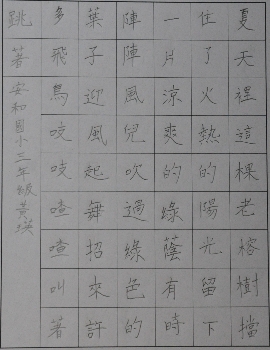 夏天裡這棵老榕樹擋
住了火熱的陽光留下
一片涼爽的綠蔭有時
陣陣風兒吹過綠色的
葉子迎風起舞招來許
多飛鳥吱吱喳喳叫著
跳著
安和國小三年級黃瑛